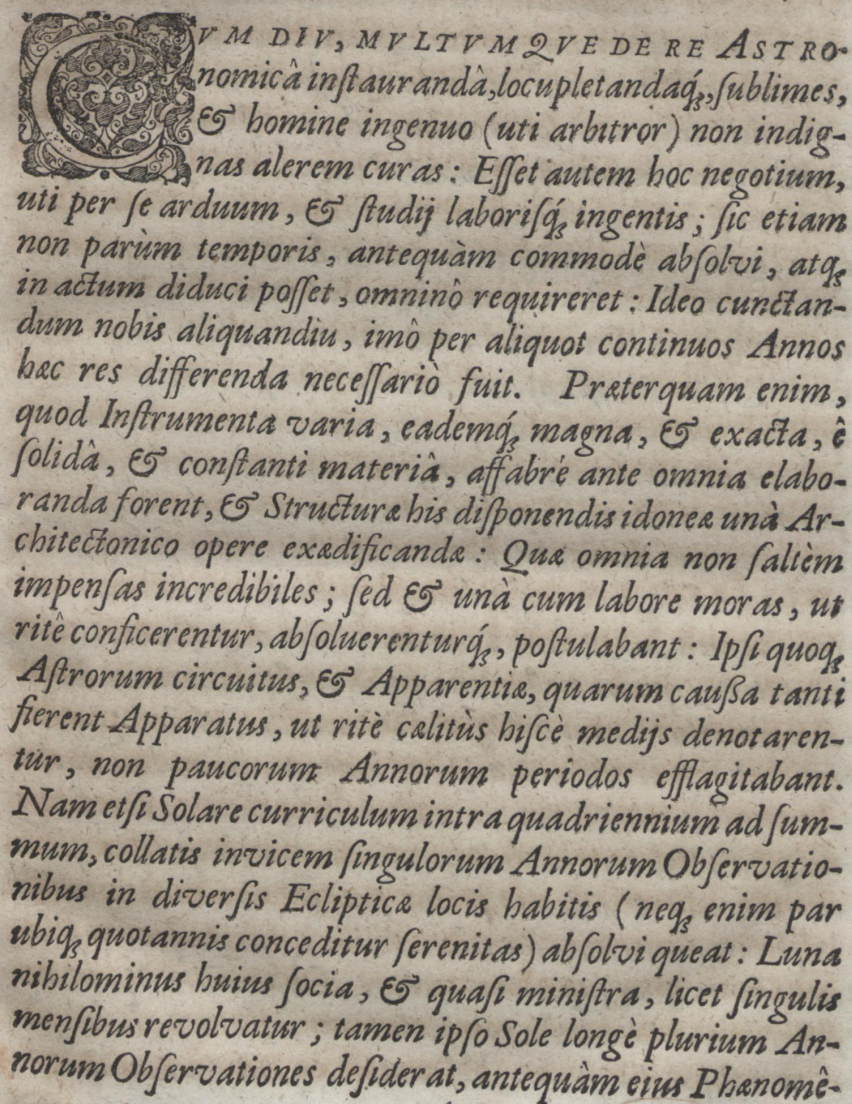 CVM DIV, MVLTVMQVE DE RE ASTRO-
nomicâ inſtaurandâ, locupletandaq́ꝫ, ſublimes,
& homine ingenuo (uti arbitror) non indig-
nas alerem curas: Eſſet autem hoc negotium,
uti per ſe arduum, & ſtudij laboriſq́ꝫ ingentis; ſic etiam
non parùm temporis, antequàm commodè abſolvi, atqꝫ
in actum diduci poſſet, omninò requireret: Ideo cunctan-
dum nobis aliquandiu, imò per aliquot continuos Annos
hæc res differenda neceſſariò fuit. Præterquam enim,
quod Inſtrumenta varia, eademq́ꝫ magna, & exacta, ê
ſolidâ, & conſtanti materiâ, affabrè ante omnia elabo-
randa forent, & Structuræ his diſponendis idoneæ unà Ar-
chitectonico opere exædificandæ: Quæ omnia non ſaltèm
impenſas incredibiles; ſed & unà cum labore moras, ut
ritê conficerentur, abſoluerenturq́ꝫ, poſtulabant: Ipſi quoqꝫ
Aſtrorum circuitus, & Apparentiæ, quarum cauſſa tanti
fierent Apparatus, ut ritè cælitùs hiſcè medijs denotaren-
tur, non paucorum Annorum periodos efflagitabant.
Nam etſi Solare curriculum intra quadriennium ad ſum-
mum, collatis invicem ſingulorum Annorum Obſervatio-
nibus in diverſis Eclipticæ locis habitis (neqꝫ enim par
ubiqꝫ quotannis conceditur ſerenitas) abſolvi queat: Luna
nihilominus huius ſocia, & quaſi miniſtra, licet ſingulis
menſibus revolvatur; tamen ipſo Sole longè plurium An-
norum Obſervationes deſiderat, antequàm eius Phænomê-